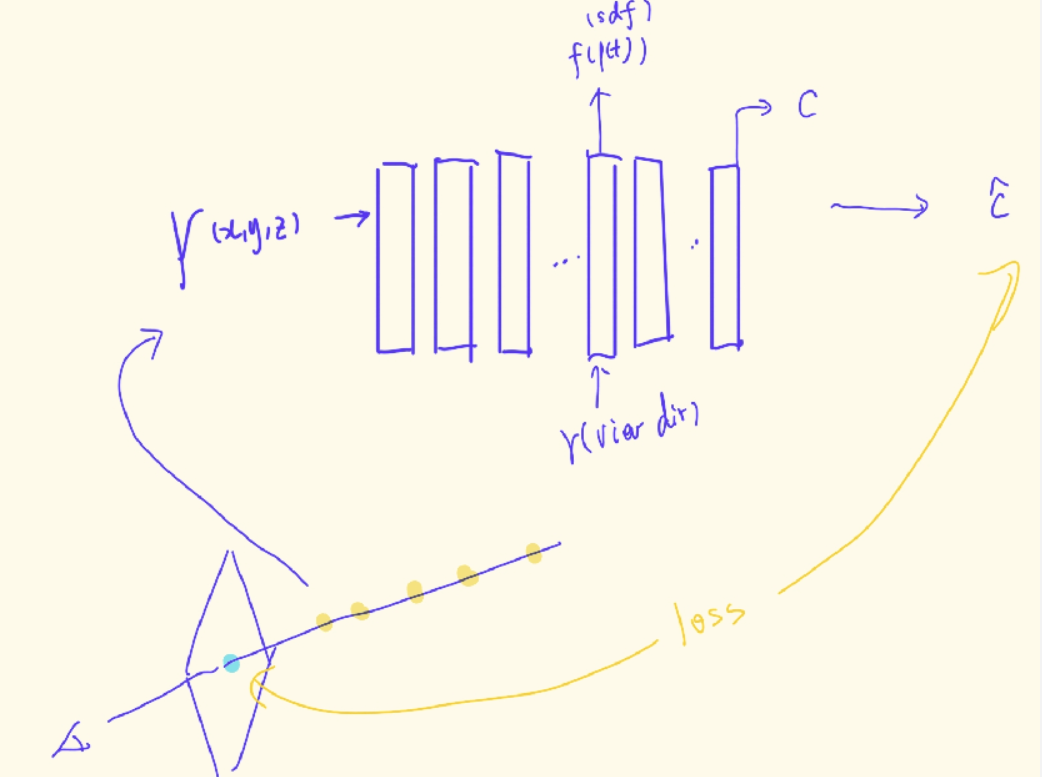 (sdf)
f(p(t))
C
γ(x,y,z)
...
ĉ
γ(view dir)
loss